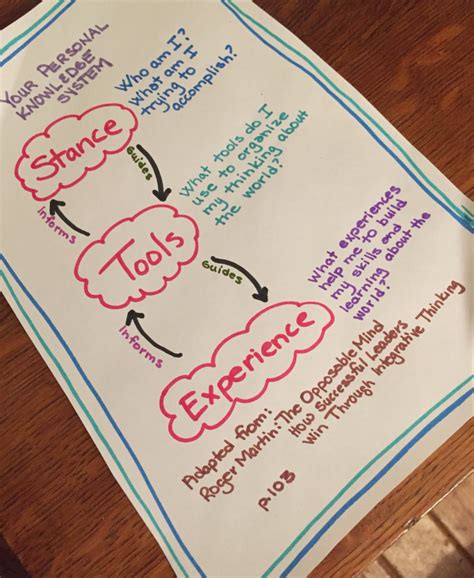 YOUR PERSONAL
KNOWLEDGE
SYSTEM
Who am I?
What am I
trying to
accomplish?
Stance
Guides
Informs
What tools do I
use to organize
my thinking about
the world?
Tools
Guides
Informs
What experiences
help me to build
my skills and
learning about the
world?"
Experience
Adapted from:
Roger Martin: The Opposable Mind
How Successful Leaders
Win Through Integrative Thinking
p.103